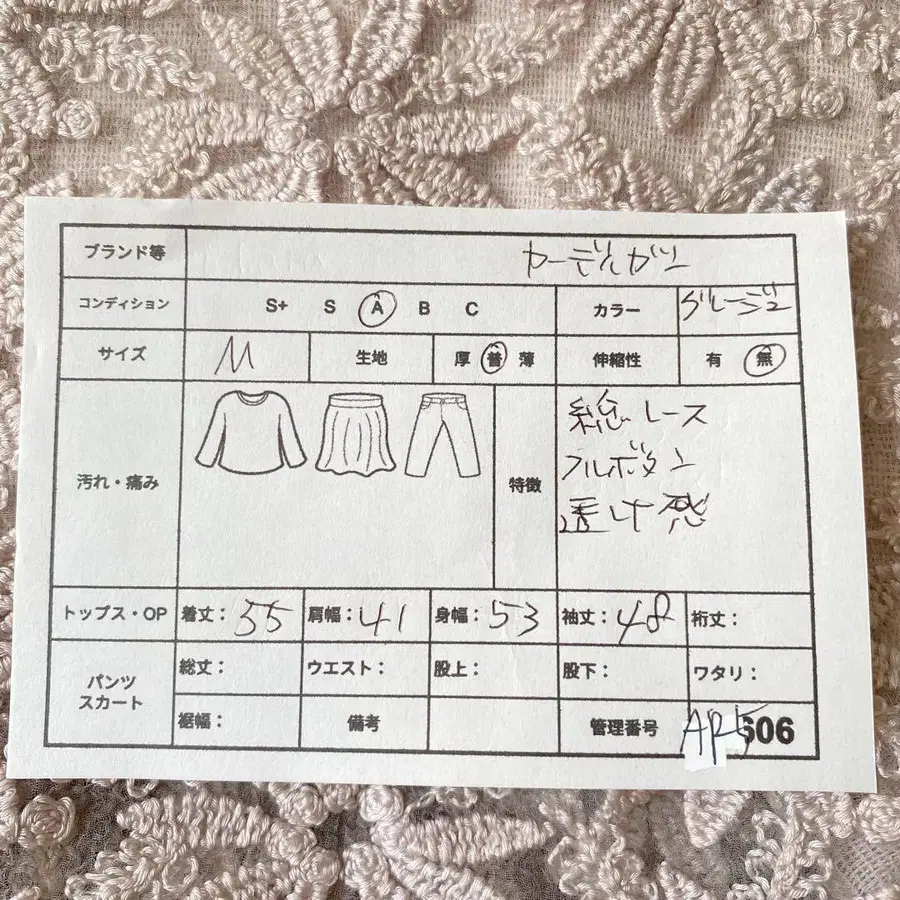 ブランド等 カーディガン
コンディション S+ S A B C カラー グレージュ
サイズ M 生地 厚 普 薄 伸縮性 有 無
汚れ・痛み 特徴
総レース
フルボタン
透け感
トップス・OP 着丈: 55 肩幅: 41 身幅: 53 袖丈: 48 裄丈:
パンツ
スカート
総丈: ウエスト: 股上: 股下: ワタリ:
裾幅: 備考 管理番号 AP5606